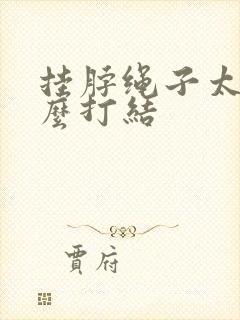 挂脖绳子太
麼打結
賈府